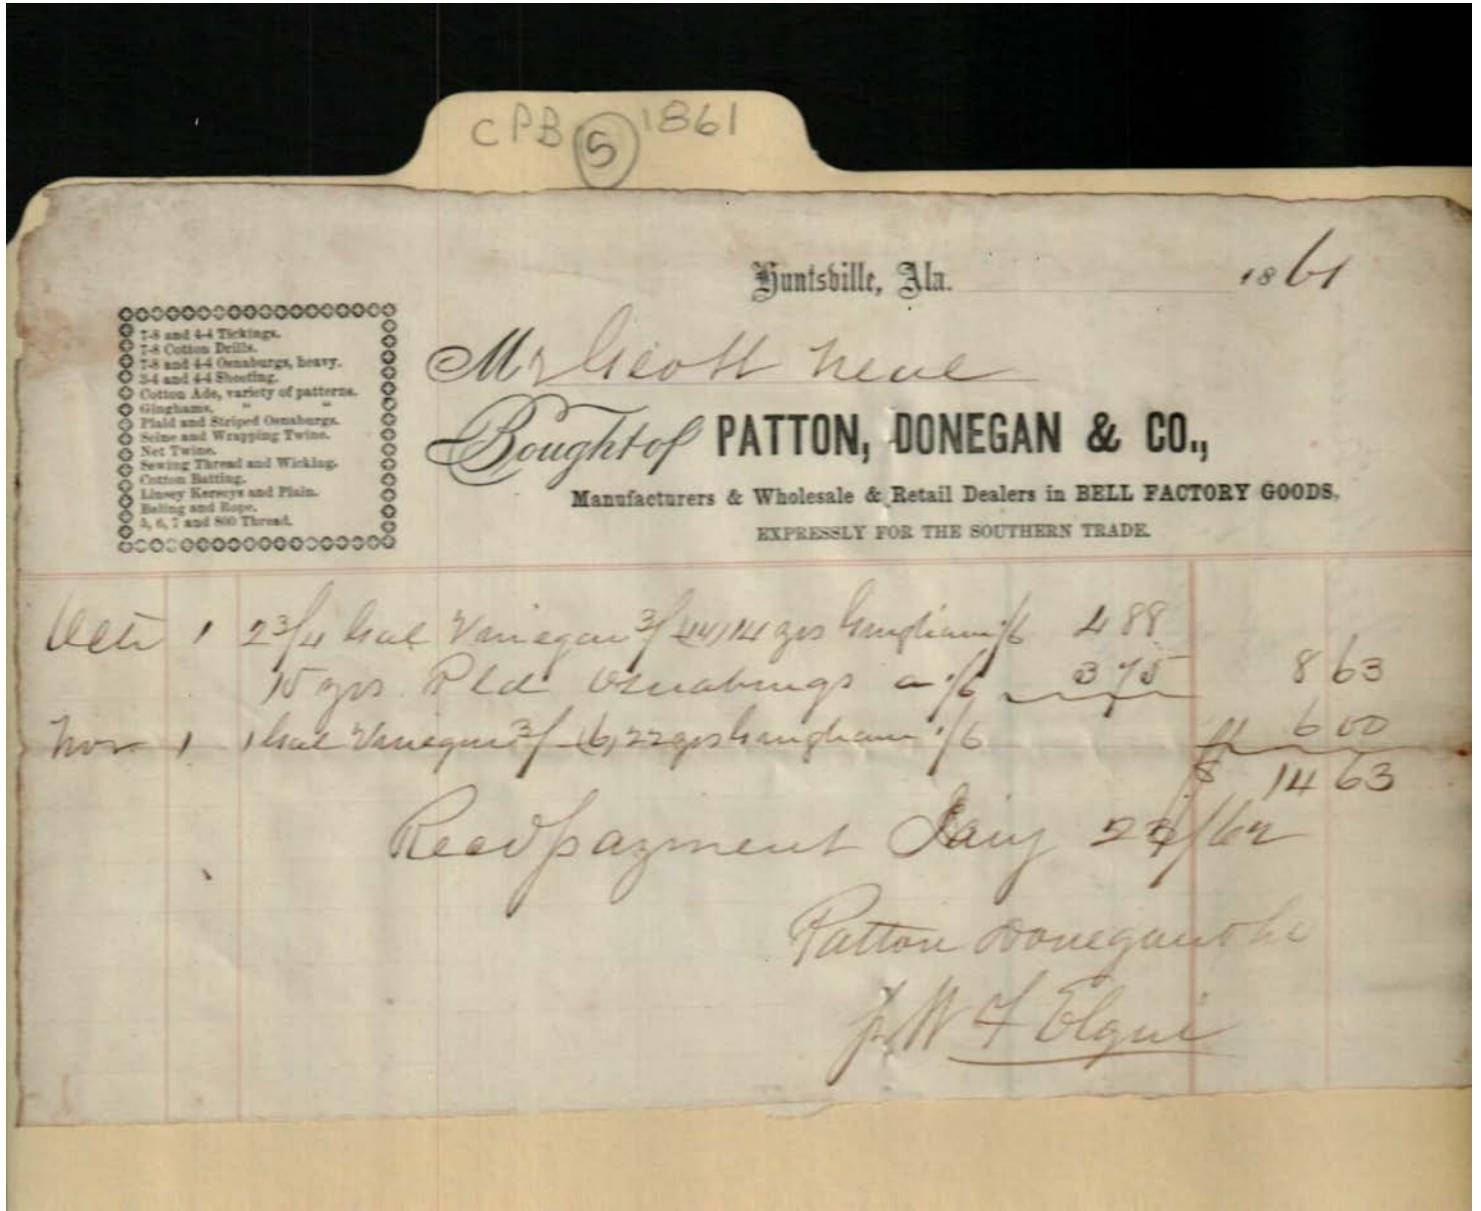 CPB 5 1861
Huntsville, Ala. 1861
7-8 and 4-4 Tickings.
7-8 Cotton Drills.
7-8 and 4-4 Osnaburgs, heavy.
3-4 and 4-4 Sheeting.
Cotton Ade, variety of patterns.
Ginghams, " "
Plaid and Striped Osnaburgs.
Seine and Wrapping Twine.
Net Twine.
Sewing Thread and Wicking.
Cotton Batting.
Linsey Kerseys and Plain.
Baling and Rope.
5, 6, 7 and 800 Thread.
Mr
Bought of PATTON, DONEGAN & CO.,
Manufacturers & Wholesale & Retail Dealers in BELL FACTORY GOODS,
EXPRESSLY FOR THE SOUTHERN TRADE.
Octr 1 2 3/4 Gal Vinegar 3/ 14 yds Gingham 1/6 4 88
15 yds Pld Osnaburgs a 1/6 3 75 8 63
Nov 1 1 Gal Vinegar 3/ 22 yds Gingham 1/6 6 00
$ 14 63
Recd payment Jany /62
Patton Donegan & Co